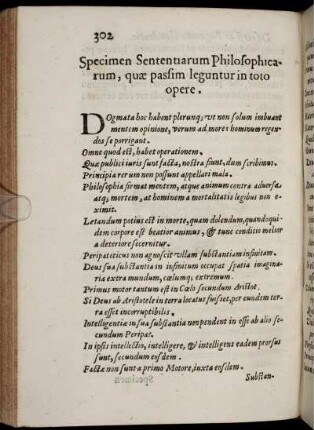 302
Specimen Sententiarum Philosophica-
rum, quæ passim leguntur in toto
opere.
Dogmata hoc habent plerunq; vt non solum imbuant
mentem opinione, verum ad mores hominum regen-
dos se porrigant.
Omne quod est, habet operationem.
Quæ publici iuris sunt facta, nostra fiunt, dum scribimus.
Principia rerum non possunt appellari mala.
Philosophia firmat mentem, atque animum contra aduersa
atq; mortem, at hominem a mortalitatis legibus non e-
ximit.
Letandum potius est in morte, quam dolendum, quandoqui-
dem corpore est beatior animus, & tunc conditio melior
a deteriore secernitur.
Peripateticus non agnoscit vllam substantiam infinitam.
Deus sua substantia in infinitum occupat spatia imagina-
ria extra mundum, cælumq; extremum.
Primus motor tantum est in Cœlo secundum Aristot.
Si Deus ab Aristotele in terra locatus fuisset, per eundem ter-
ra esset incorruptibilis.
Intelligentiæ in sua substantia non pendent in esse ab alio se-
cundum Peripat.
In ipsis intellectio, intelligere, & intelligens eadem prorsus
sunt, secundum eosdem.
Factæ non sunt a primo Motore, iuxta eosdem.
Substan-